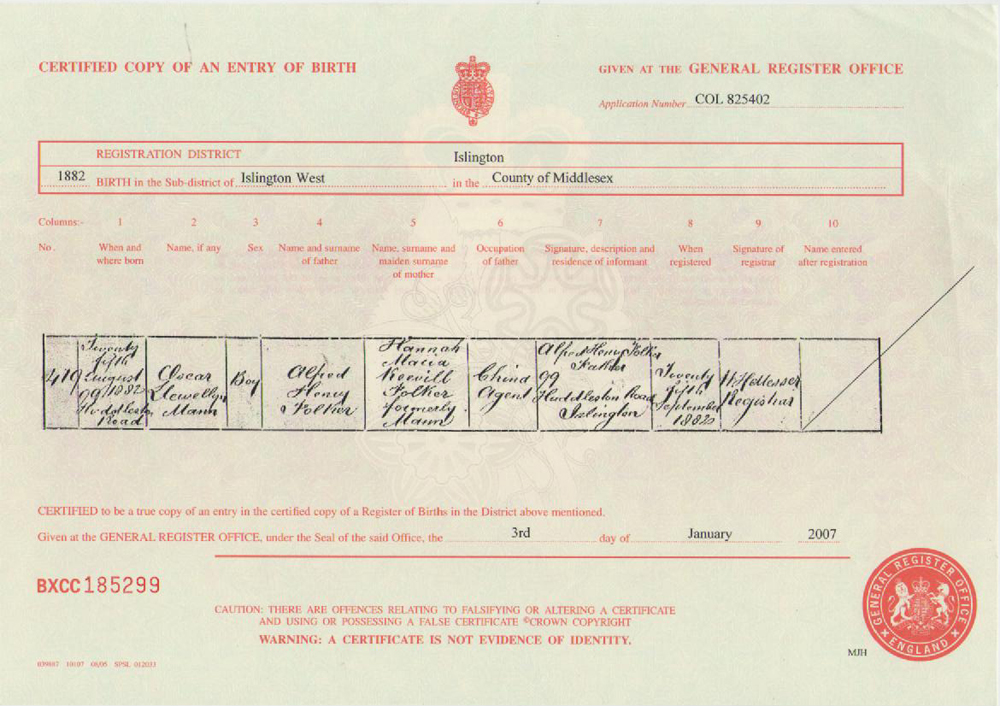 CERTIFIED COPY OF AN ENTRY OF BIRTH
GIVEN AT THE GENERAL REGISTER OFFICE
Application Number COL 825402
REGISTRATION DISTRICT Islington
1882 BIRTH in the Sub-district of Islington West in the County of Middlesex
Columns:- 1 2 3 4 5 6 7 8 9 10
No. When and where born Name, if any Sex Name and surname of father Name, surname and maiden surname of mother Occupation of father Signature, description and residence of informant When registered Signature of registrar Name entered after registration
419
Twenty
fifth
August
1882
99
Huddleston
Road
Oscar
Llewellyn
Mann
Boy
Alfred
Henry
Folker
Hannah
Maria
Folker
formerly
Mann
China
Agent
Alfred Henry Folker
Father
99
Huddleston Road
Islington
Twenty
fifth
September
1882
Registrar
CERTIFIED to be a true copy of an entry in the certified copy of a Register of Births in the District above mentioned.
Given at the GENERAL REGISTER OFFICE, under the Seal of the said Office, the 3rd day of January 2007
BXCC 185299
CAUTION: THERE ARE OFFENCES RELATING TO FALSIFYING OR ALTERING A CERTIFICATE
AND USING OR POSSESSING A FALSE CERTIFICATE ©CROWN COPYRIGHT
WARNING: A CERTIFICATE IS NOT EVIDENCE OF IDENTITY.
GENERAL REGISTER OFFICE
ENGLAND
MJH
SPSL